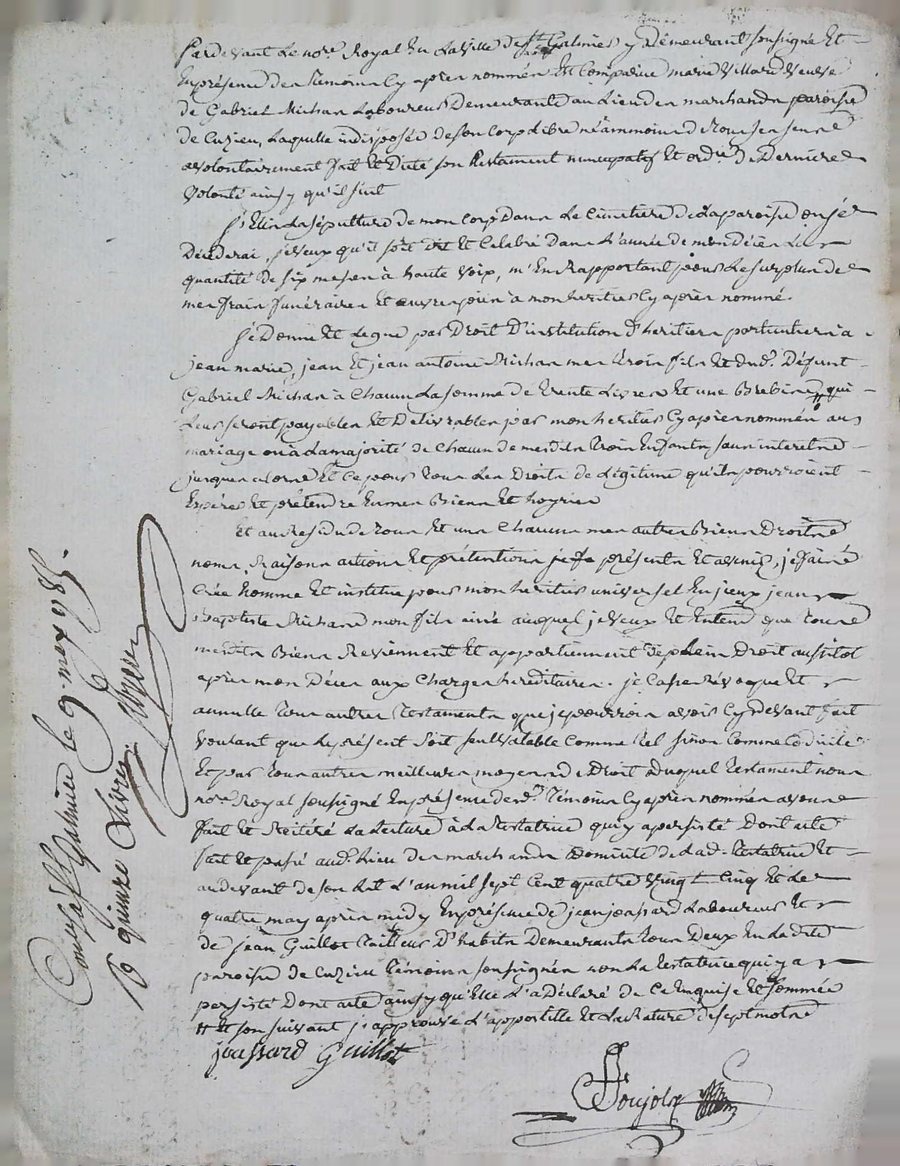 Pardevant Le nore Royal En LaVille de St Galmier y Demeurant Soussigné Et
En présence des Temoins Cy apres nommés Est Comparue marie Villard Veuve
de Gabriel Michar Laboureur Demeurante au Lieu des marchands paroisse
de Cuzieu, Laquelle indisposée de son Corp Libre néammoins de Tous ses sens
a volontairement fait Et Dicté son Testament nuncupatif Et ordre De Derniere
Volonté ainsy qu'il suit
Elis La sépulture de mon Corp Dans Le Cimetiere de La paroisse ou je
Décéderai, je Veux qu'il soit Dit Et Celebré Dans L'année de mon décés La
quantité De six messes à haute Voix, m'En Rapportant pour Le surplus de
mes frais funéraires Et œuvres pies à mon heritier Cy apres nommé.
Je Donne Et Legue par Droit D'institution D'heritiers particuliers à
jean marie, jean Et jean antoine Michar mes Trois fils Et dud. Défunt
Gabriel Michar à Chacun La somme de Trente Livres Et une Brebis qui
Leur seront payables Et Delivrables par mon heritier Cy apres nommé au
mariage ou à La majorité de Chacun de mesdits Trois Enfants, sans interets
jusques alors Et Ce pour Tous Les Droits de Légitime qu'ils pourroient
Espérer Et prétendre En mes Biens Et hoyrie
Et au Residu de Tous Et uns Chacuns mes autres Biens Droits
noms, Raisons actions Et prétentions présents Et avenir, je fais
Crée nomme Et institue pour mon heritier universel jean
Baptiste Michard mon fils ainé auquel je Veux Et Entend que Tous
mesdits Biens Reviennent Et appartiennent de plein Droit aussitot
apres mon Décés aux Charges hereditaires. je Casse Révoque Et
annulle Tous autres Testaments que je pourrois avoir Cy devant fait
Voulant que Le présent soit seul Valable Comme Tel sinon Comme Codicile
Et par Tous autres meilleurs moyens de Droit duquel Testament nous
nore Royal soussigné En présence desd. Témoins Cy apres nommés avons
fait Et Réitéré La Lecture à La Testatrice qui y a persisté Dont acte
fait Et passé aud. Lieu des marchands Domicile de Lad. Testatrice Et
au devant de son Lit L'an mil sept Cent quatre Vingt Cinq Et Le
quatre may apres midy En présence de jean joassard Laboureur Et
de jean Guillot Tailleur D'habits Demeurants Tous Deux En Ladite
paroisse de Cuzieu Témoins soussignés non La Testatrice qui y a
persisté Dont acte ainsy qu'Elle L'a Déclaré De Ce Enquise Et sommée
# Et son suivant j'approuve L'appostille Et La Rature De sept mots
joassard Guillot
Soujols
Controllé a St Galmier le 9. may 1785.
R quinze Livres